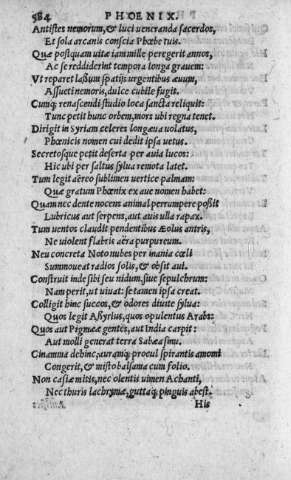 584 PHOENIX.
Antistes nemorum, & luci veneranda sacerdos,
Et sola arcanis conscia Phœbe tuis.
Quæ postquam uitæ iam mille peregerit annos,
Ac se reddiderint tempora longa grauem:
Vt reparet lassum spatijs urgentibus æuum,
Assueti nemoris, dulce cubile fugit.
Cumq; renascendi studio loca sancta reliquit:
Tunc petit hunc orbem, mors ubi regna tenet.
Dirigit in Syriam celeres longæua uolatus,
Phœnicis nomen cui dedit ipsa uetus.
Secretosque petit deserta per auia lucos:
Hic ubi per saltus sylua remota latet.
Tum legit aëreo sublimem uertice palmam:
Quæ gratum Phœnix ex aue nomen habet:
Quam nec dente nocens animal perrumpere possit
Lubricus aut serpens, aut auis ulla rapax.
Tum uentos claudit pendentibus Æolus antris,
Ne uiolent flabris aëra purpureum.
Neu concreta Noto nubes per inania cœli
Summoueat radios solis, & obsit aui.
Construit inde sibi seu nidum, siue sepulchrum:
Nam perit, ut uiuat: se tamen ipsa creat.
Colligit hinc succos, & odores diuite sylua:
Quos legit Assyrius, quos opulentus Arabs:
Quos aut Pigmææ gentes, aut India carpit:
Aut molli generat terra Sabæa sinu.
Cinnama dehinc, auramq; procul spirantis amomi
Congerit, & misto balsama cum folio.
Non casiæ mitis, nec olentis uimen Achanti,
Nec thuris lachrymæ, guttaq; pinguis abest.
His